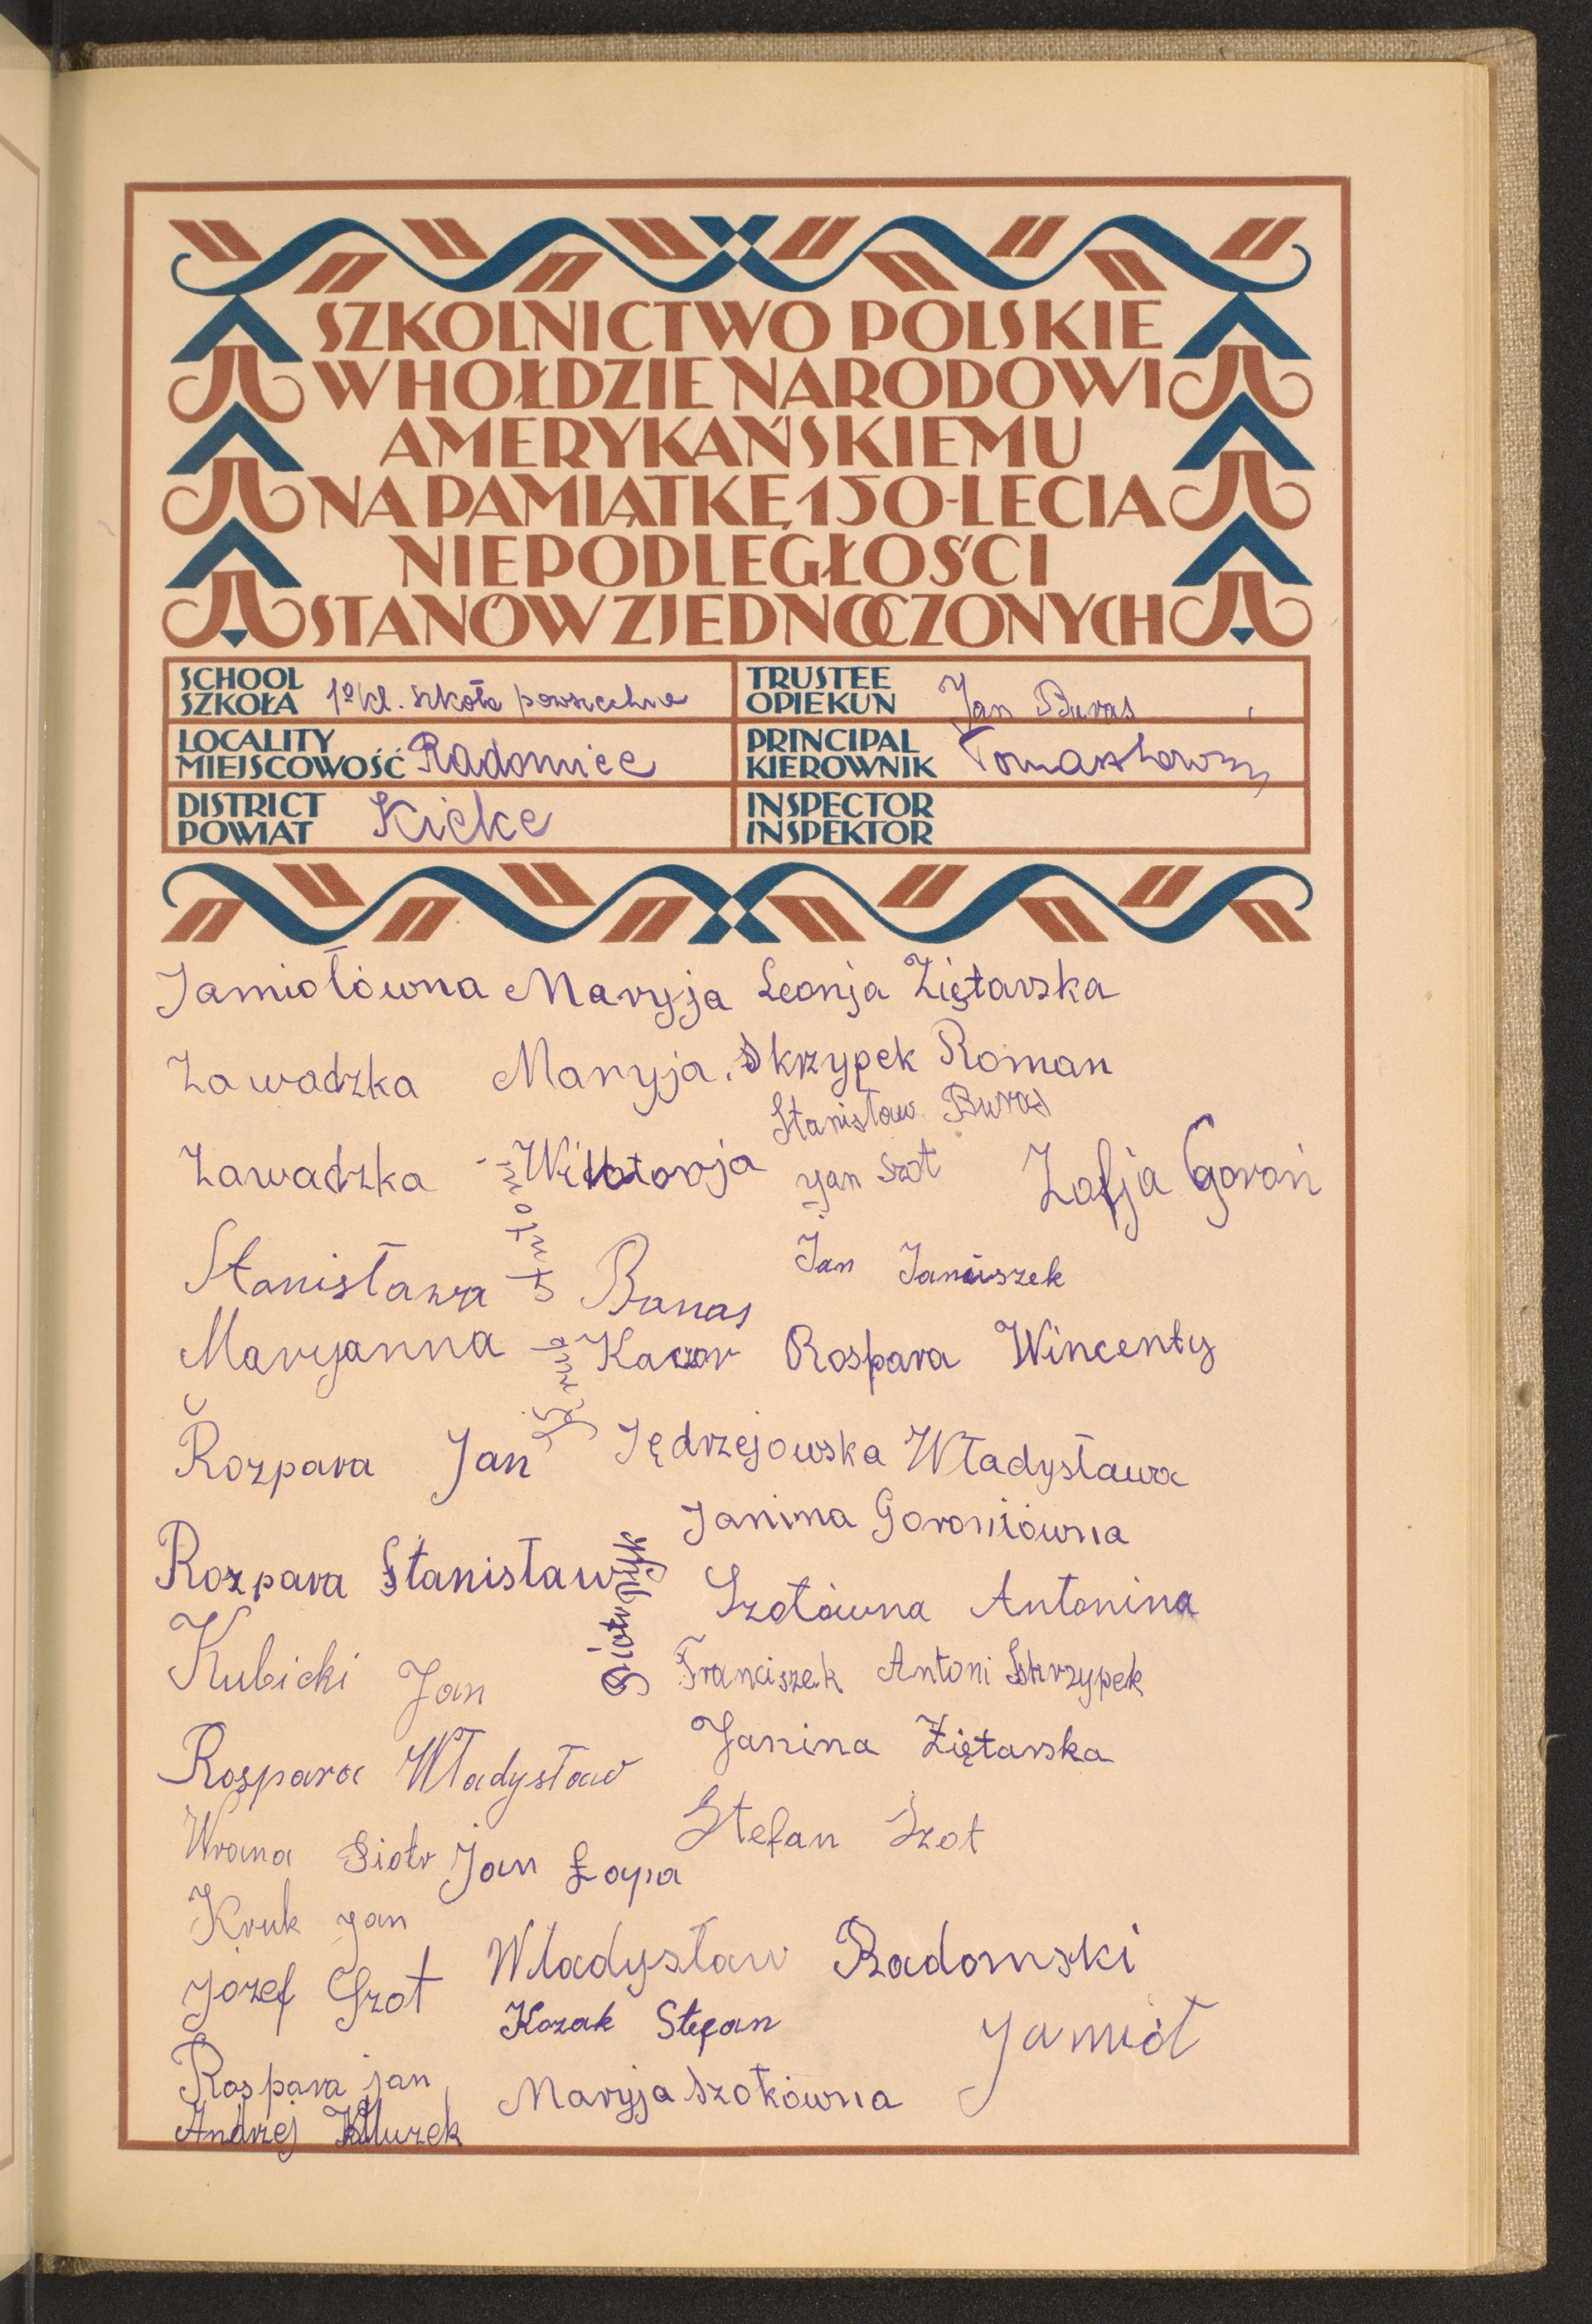 SZKOLNICTWO POLSKIE
W HOŁDZIE NARODOWI
AMERYKAŃSKIEMU
NA PAMIĄTKĘ 150-LECIA
NIEPODLEGŁOŚCI
STANÓW ZJEDNOCZONYCH
SCHOOL
SZKOŁA 1o kl. szkoła powszechna
TRUSTEE
OPIEKUN Jan Buras
LOCALITY
MIEJSCOWOŚĆ Radomice
PRINCIPAL
KIEROWNIK
DISTRICT
POWIAT Kielce
INSPECTOR
INSPEKTOR
Jamiołówna Maryja Leonja Ziętarska
Zawadzka Maryja. Skrzypek Roman
Stanisław Buras
Zawadzka Wiktorja Jan Szot Zofja Goroń
Antoni
Stanisława Banas Jan Janiszek
Maryanna Kaczor Rospara Wincenty
Rozpara Jan Jędrzejowska Władysława
Janina Goroniówna
Rozpara Stanisław
Piotr Pyk
Szotówna Antonina
Kubicki Jan Franciszek Antoni Skrzypek
Rospara Władysław Janina Ziętarska
Wrona Piotr Jan Łapa Stefan Szot
Kruk Jan
Józef Szot Władysław Radomski
Kozak Stefan Jamioł
Rospara jan Maryja Szotówna
Andrzej